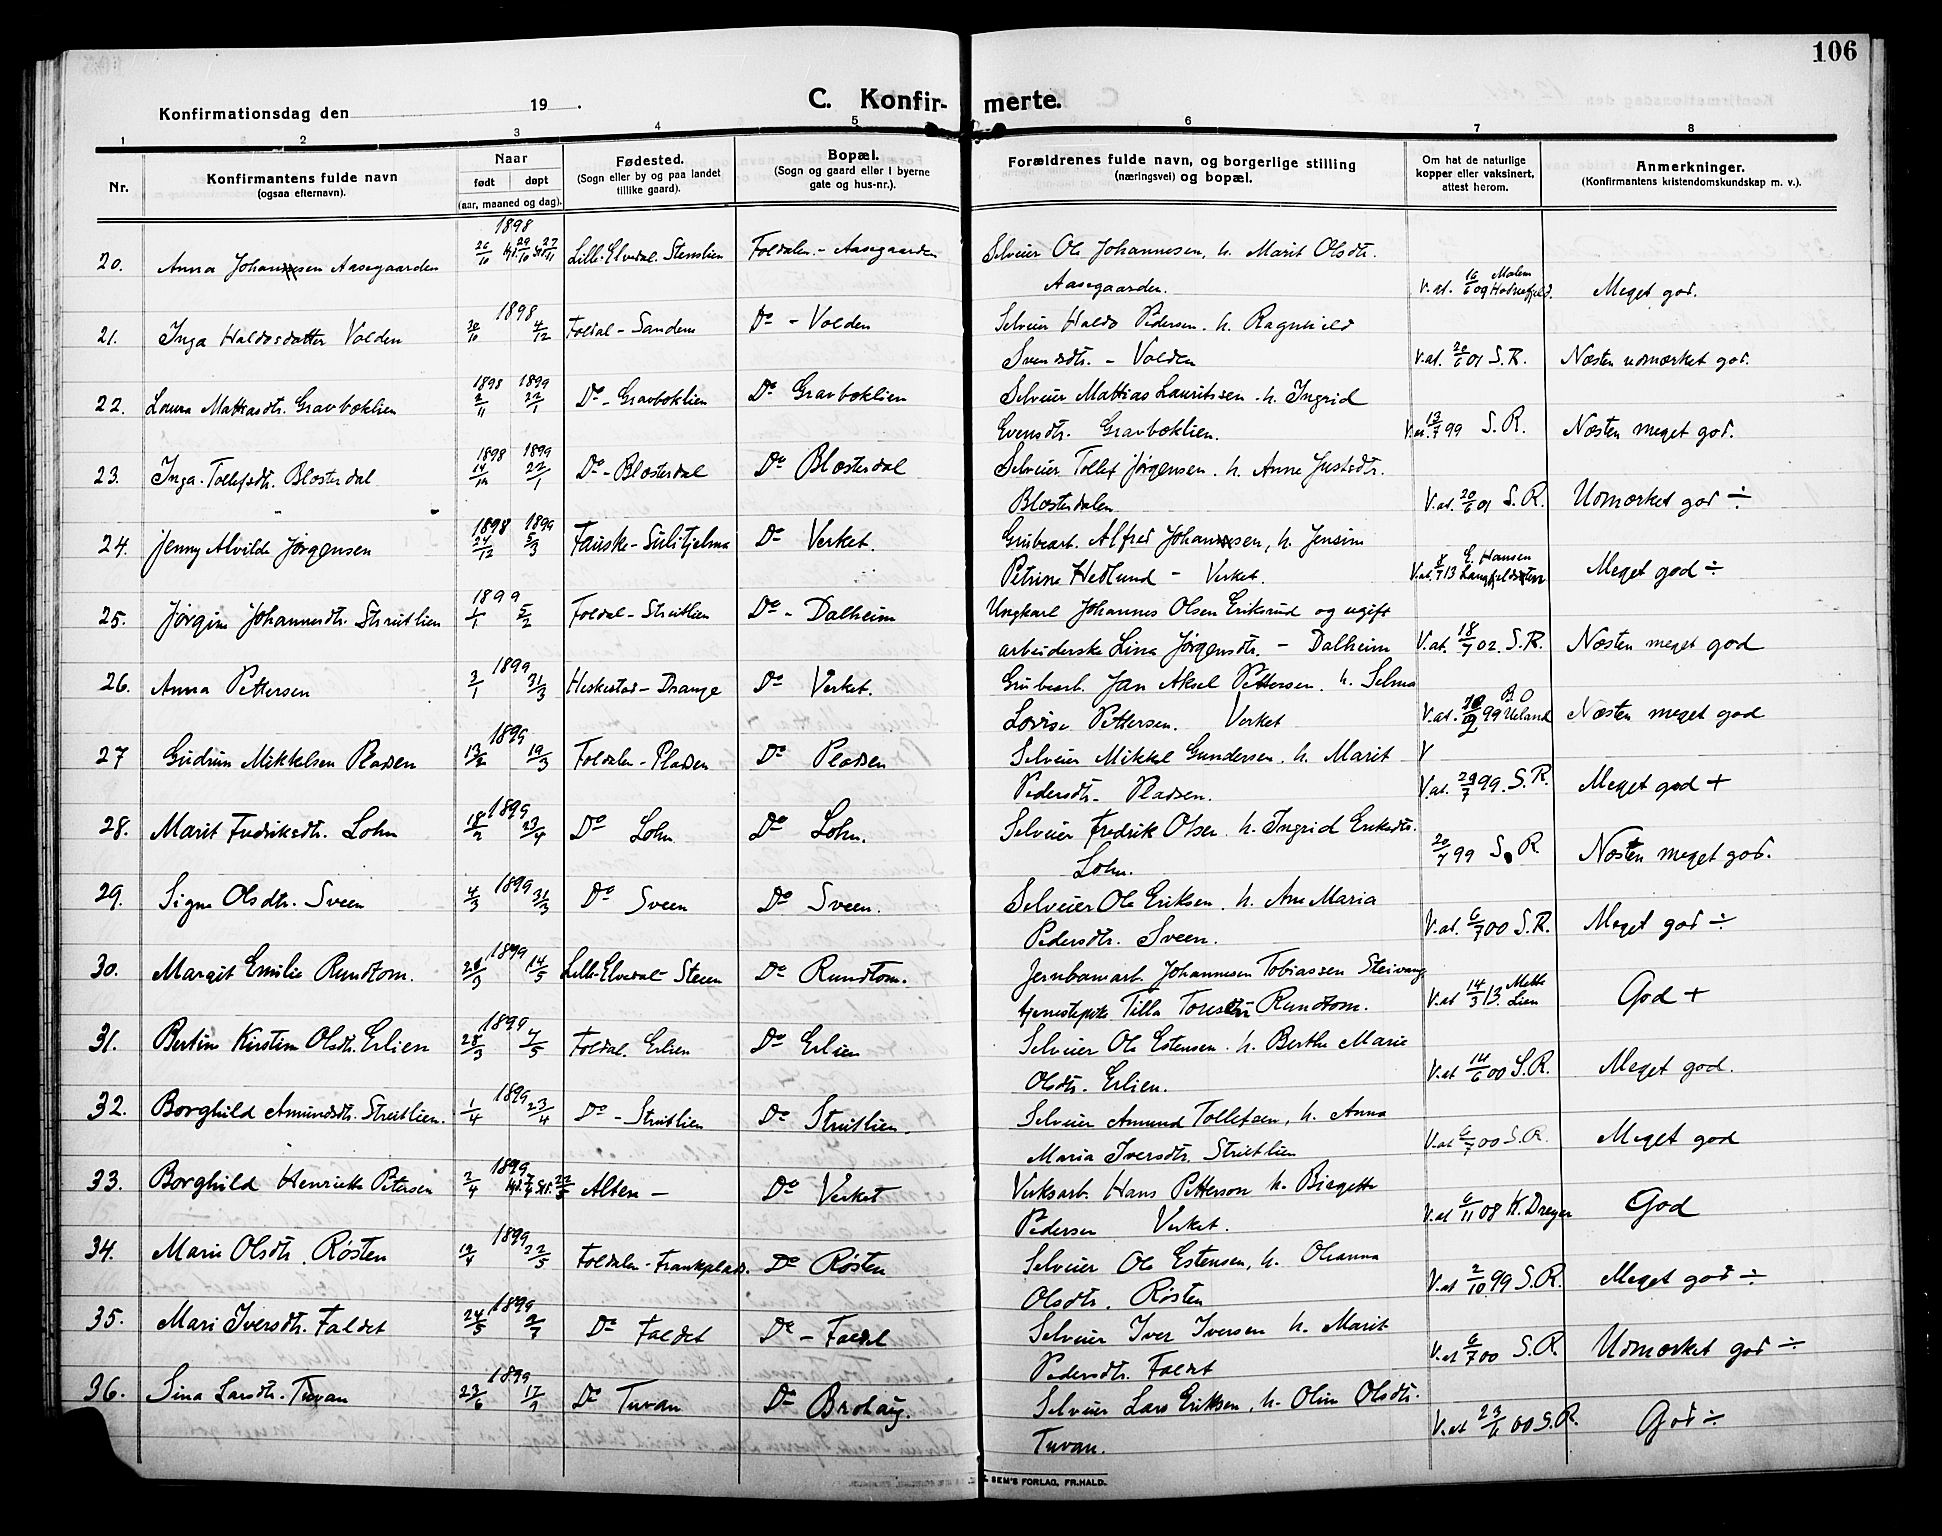 106
Konfirmationsdag den 19 .
C. Konfir- merte.
1 2 3 4 5 6 7 8
Nr.
Konfirmantens fulde navn
(ogsaa efternavn).
Naar
født døpt
(aar, maaned og dag).
Fødested.
(Sogn eller by og paa landet
tillike gaard).
Bopæl.
(Sogn og gaard eller i byerne
gate og hus-nr.).
Forældrenes fulde navn, og borgerlige stilling
(næringsvei) og bopæl.
Om hat de naturlige
kopper eller vaksinert,
attest herom.
Anmerkninger.
(Konfirmantens kristendomskundskap m. v.).
20. Anna Johannesen Aasegaarden 1898 26/10 Hjd. 29/10 St. 27/11 Lille-Elvedal. Stenslien Foldalen - Aasegaarden Selveier Ole Johannesen, h. Marit Olsdtr.
Aasegaarden. V. at. 16/6 09 Malem Hodnefjeld. Meget god.
21. Inga Haldosdatter Volden 1898 20/10 4/12 Foldal - Sandem Do - Volden Selveier Haldo Pedersen. h. Ragnhild
Svendsdtr. - Volden V. at. 20/6 01 S. R. Næsten udmærket god.
22. Laura Mattiasdtr. Gravboklien 1898 2/11 1899 22/1 Do - Gravboklien Do Gravboklien Selveier Mattias Lauritssen. h. Ingrid
Evensdtr. Gravboklien. V. at. 13/7 99 S. R. Næsten meget god.
23. Inga Tollefsdtr. Blæsterdal 1898 14/12 1899 22/1 Do - Blæsterdal Do Blæsterdal Selveier Tollef Jørgensen. h. Anne Justsdtr.
Blæsterdalen V. at. 20/6 01 S. R. Udmærket god ÷
24. Jenny Alvilde Jørgensen 1898 24/12 1899 5/3 Fauske - Sulitjelma Do Verket. Grubearb. Alfred Johannesen, h. Jensine
Petrine Hedlund - Verket. V. at. 8/7 13 E. Hansen Meget god ÷
25. Jørgine Johannesdtr. Streitlien 1899 1/1 5/2 Foldal - Streitlien Do - Dalheim Ungkarl Johannes Olsen Eriksrud og ugift
arbeiderske Lina Jørgensdtr. - Dalheim V. at. 18/7 02. S. R. Næsten meget god
26. Anna Pettersen 1899 2/1 31/3 Heskestad - Drange Do Verket. Grubearb. Jan Aksel Pettersen. h. Selma
Lovise Pettersen. Verket V. at. 99 B O Ueland Næsten meget god
27 Gudrun Mikkelsen Pladsen 1899 13/2 19/3 Foldalen - Pladsen Do Pladsen Selveier Mikkel Gundersen. h. Marit
Pedersdtr. Pladsen. V. at. 29/7 99. S. R. Meget god +
28. Marit Fredriksdtr. Lohn 1899 18/2 23/4 Do Lohn Do Lohn. Selveier Fredrik Olsen. h. Ingrid Eriksdtr.
Lohn. 20/7 99 S. R. Næsten meget god.
29. Signe Olsdtr. Sveen 1899 4/3 31/3 Do Sveen Do Sveen. Selveier Ole Eriksen. h. Ane Maria
Pedersdtr. Sveen. V. at. 6/7 00 S. R. Meget god ÷
30. Margit Emilie Rundtom. 1899 28/3 14/5 Lille-Elvedal - Steien Do Rundtom. Jernbanearb. Johannesen Tobiassen Steivang
tjenestepike Tilla Toresdtr Rundtom. V. at 14/3 13 Mette Lien God +
31. Bertine Kirstine Olsdtr. Erlien 1899 28/3 7/5 Foldal. Erlien Do Erlien Selveier Ole Estensen. h. Berthe Marie
Olsdtr. Erlien. V. at 14/6 00 S. R. Meget god.
32. Borghild Amundsdtr. Streitlien. 1899 1/4 23/4 Do - Streitlien Do Streitlien - Selveier Amund Tollefsen, h. Anna
Maria Iversdtr. Streitlien V. at 6/7 00 S. R. Meget god
33. Borghild Henriette Petersen 1899 2/4 Alten - Do Verket Verksarb. Hans Petterson h. Birgette
Pedersen Verket. V. at 6/11 08 K. Dreyer God
34. Marie Olsdtr. Røsten 1899 12/4 22/5 Foldalen - Frankplads. Do Røsten Selveier Ole Estensen, h. Oleanna
Olsdtr. Røsten V. at 2/10 99 S. R. Meget god ÷
35. Mari Iversdtr. Faldet 1899 24/5 2/7 Do Faldet Do - Faldet Selveier Iver Iversen h. Marit
Pedersdtr. Faldet V. at 6/7 00 S. R. Udmærket god ÷
36. Sina Larsdtr. Tuvan 1899 23/6 17/9 Do Tuvan Do Brohaug. Selveier Lars Eriksen, h. Oline Olsdtr.
Tuvan. V. at 23/6 00 S. R. God ÷
SEM'S FORLAG, FR.HALD.